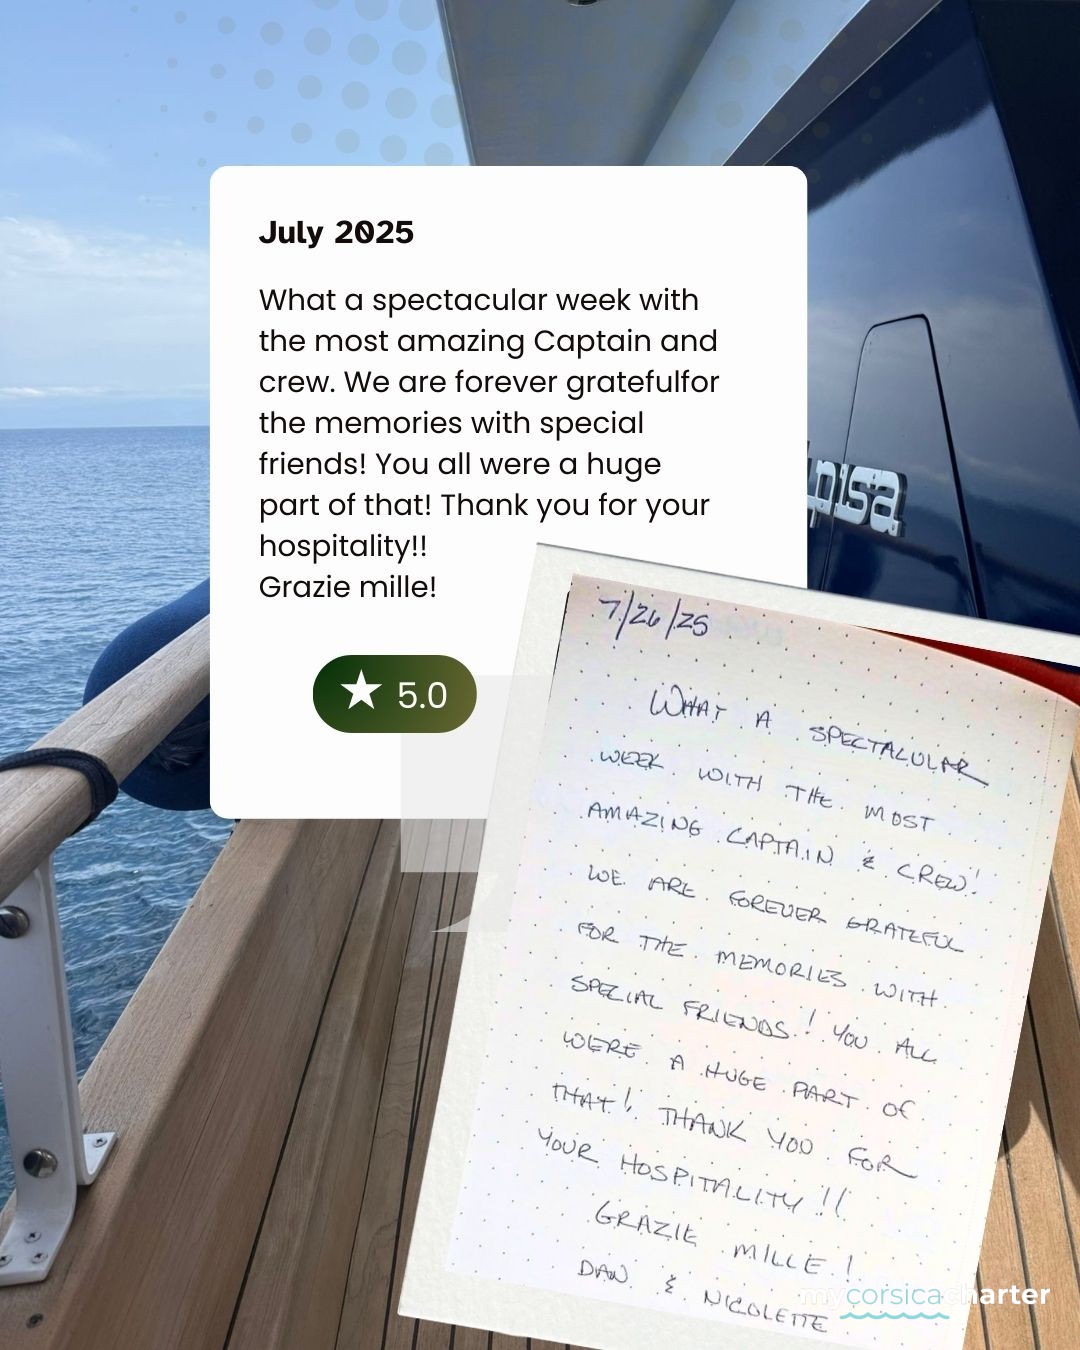 July 2025
What a spectacular week with
the most amazing Captain and
crew. We are forever gratefulfor
the memories with special
friends! You all were a huge
part of that! Thank you for your
hospitality!!
Grazie mille!
★ 5.0
pisa
7/26/25
WHAT A SPECTACULAR
WEEK WITH THE MOST
AMAZING CAPTAIN & CREW!
WE ARE FOREVER GRATEFUL
FOR THE MEMORIES WITH
SPECIAL FRIENDS! YOU ALL
WERE A HUGE PART OF
THAT! THANK YOU FOR
YOUR HOSPITALITY!!
GRAZIE MILLE!
DAN & NICOLETTE
mycorsicacharter